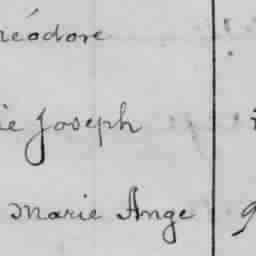 héodore
ie Joseph
Marie Ange